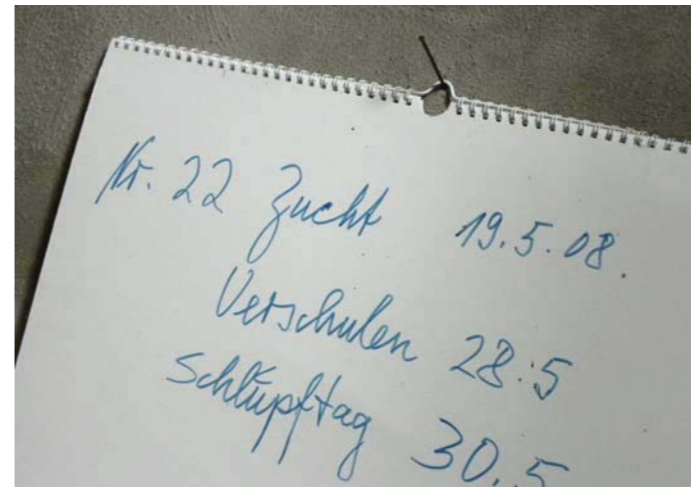 Nr. 22 Zucht 19.5.08.
Verschulen 28.5
Schlüpftag 30.5